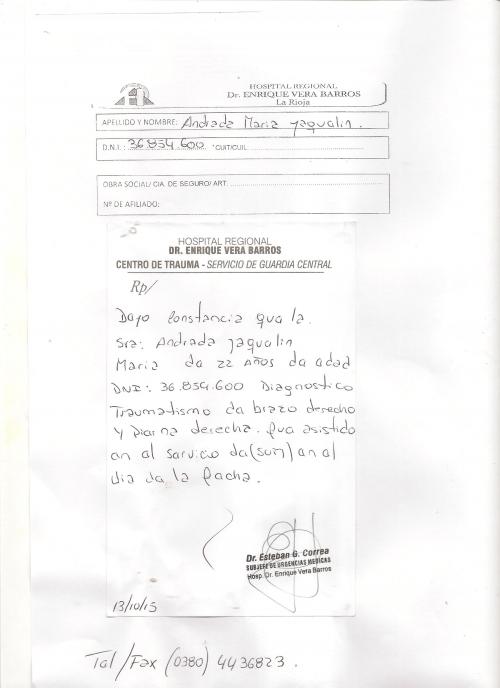 HOSPITAL REGIONAL
Dr. ENRIQUE VERA BARROS
La Rioja
APELLIDO Y NOMBRE: Andrada Maria yaqualin.
D.N.I.: 36.854.600 *CUIT/CUIL:
OBRA SOCIAL/ CIA. DE SEGURO/ ART:
Nº DE AFILIADO:
HOSPITAL REGIONAL
DR. ENRIQUE VERA BARROS
CENTRO DE TRAUMA - SERVICIO DE GUARDIA CENTRAL
Rp/
Dajo Constancia qua la.
Sra: Andrada yaqualin
Maria da 22 AÑOS da adad
DNI: 36.854.600 Diagnostico
Traumatismo da brazo derecho
y piarna derecha. Fua asistido
an al sarvicio da (sum) an al
dia da la facha.
Dr. Esteban G. Correa
SUBJEFE DE URGENCIAS MEDICAS
Hosp. Dr. Enrique Vera Barros
13/10/15
Tal/Fax (0380) 4436823.